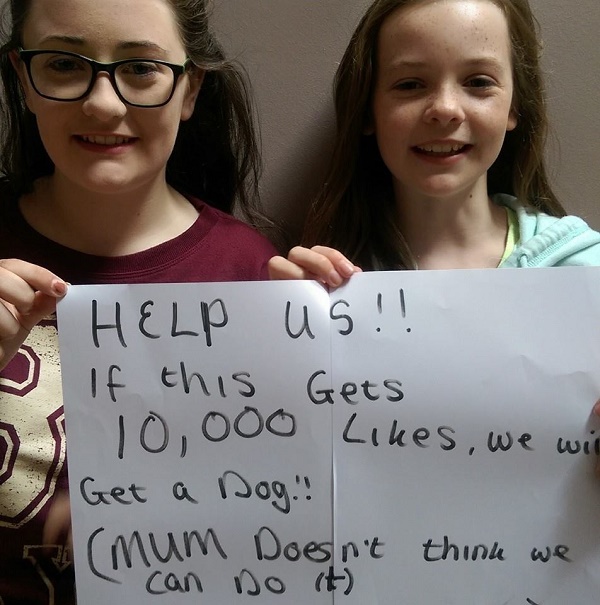 HELP US!!
If this Gets
10,000 Likes, we wi
Get a Dog!!
(MUM Doesn't think we
can Do it)